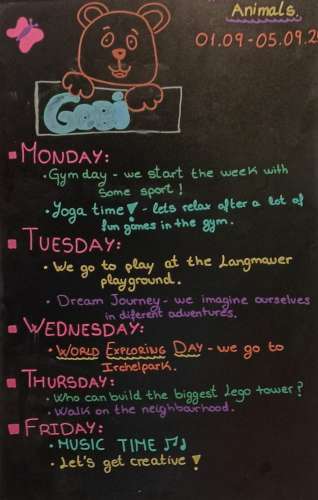 Animals.
01.09 - 05.09.2
Gobi
MONDAY:
• Gym day - we start the week with
some sport!
• Yoga time! - lets relax after a lot of
fun games in the gym.
TUESDAY:
• We go to play at the Langmauer
playground.
• Dream Journey - we imagine ourselves
in diferent adventures.
WEDNESDAY:
• WORLD EXPLORING DAY - we go to
Irchelpark.
THURSDAY:
• Who can build the biggest Lego tower?
• Walk on the neighbourhood.
FRIDAY:
• MUSIC TIME ♫♪
• Let's get creative!